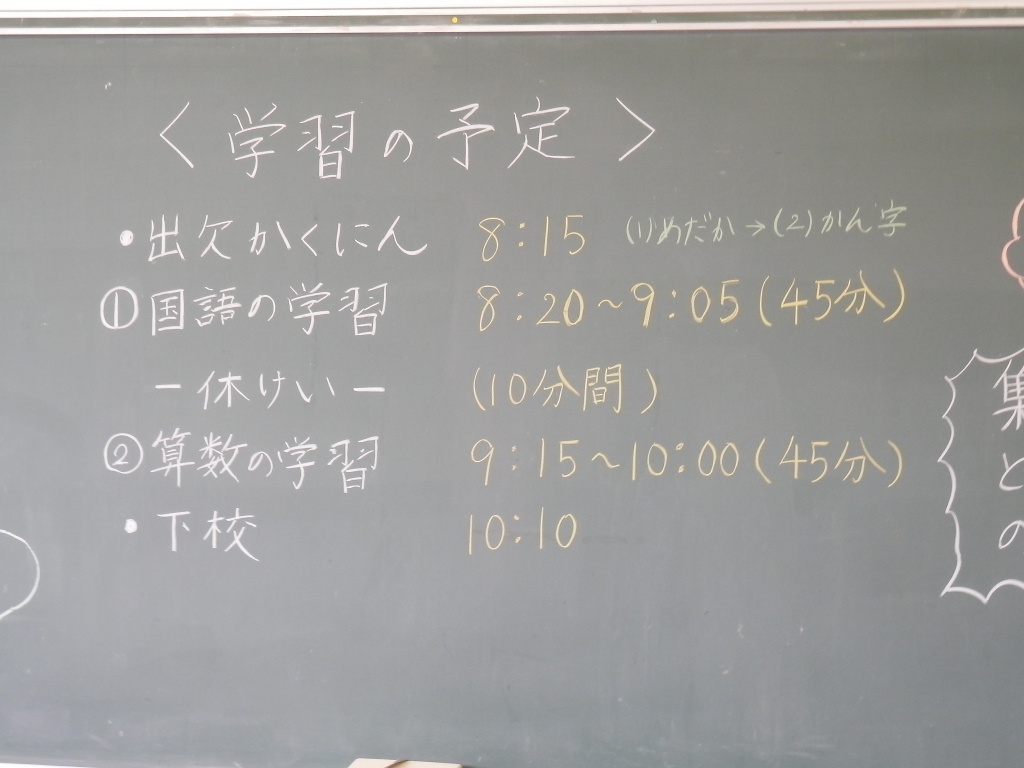 〈学習の予定〉
・出欠かくにん 8:15 (1)めだか→(2)かん字
①国語の学習 8:20~9:05(45分)
ー休けいー (10分間)
②算数の学習 9:15~10:00(45分)
・下校 10:10
と
の